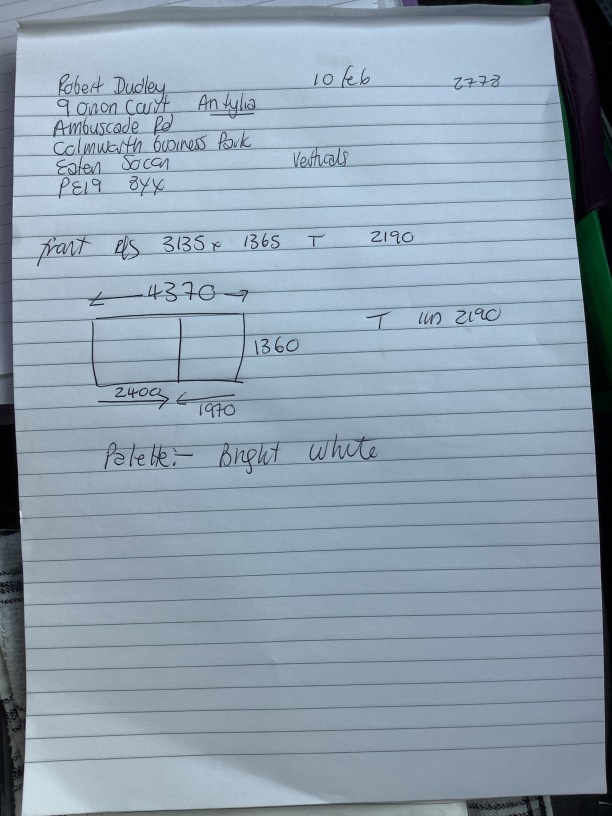 Robert Dudley 10 feb 2773
9 orion Court Antylia
Ambuscade Rd
Colmworth business Park
Eaten Socan Verticals
PE19 8YX
front R/S 3135 x 1365 T 2190
4370
T un 2190
1360
2400
1970
Palette:- Bright White